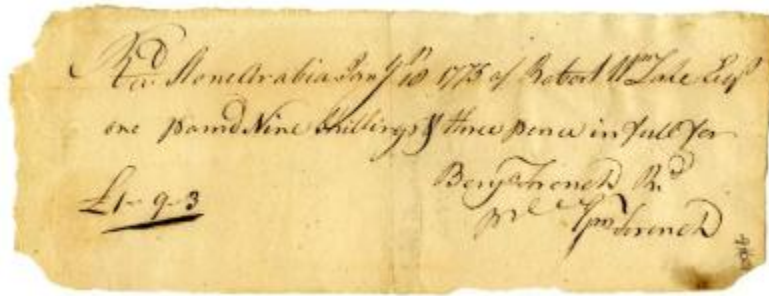 Rec.d Stonearabia Jany 10 1775 of Robert Wm Lake Esqr
one pound Nine Shillings & three pence in full for
Benjn French Rd
£1-9-3
pr me Wm French